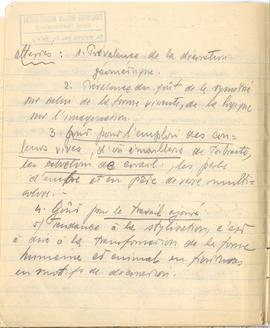 attestés : 1. Prévalence de la décoration
géométrique.
2. Prévalence du goût de la symétrie
sur celui de la forme vivante, de la logique
sur l'imagination.
3. goût pour l'emploi des cou-
leurs vives d'où émaillerie de
les de corail, les perles
d'ambre et en pâte de verre multi-
colore.
4. Goût pour le travail ajouré
5) Tendance à la stylisation, c'est
à dire à la transformation de la forme
humaine et animale en
en motifs de décoration.